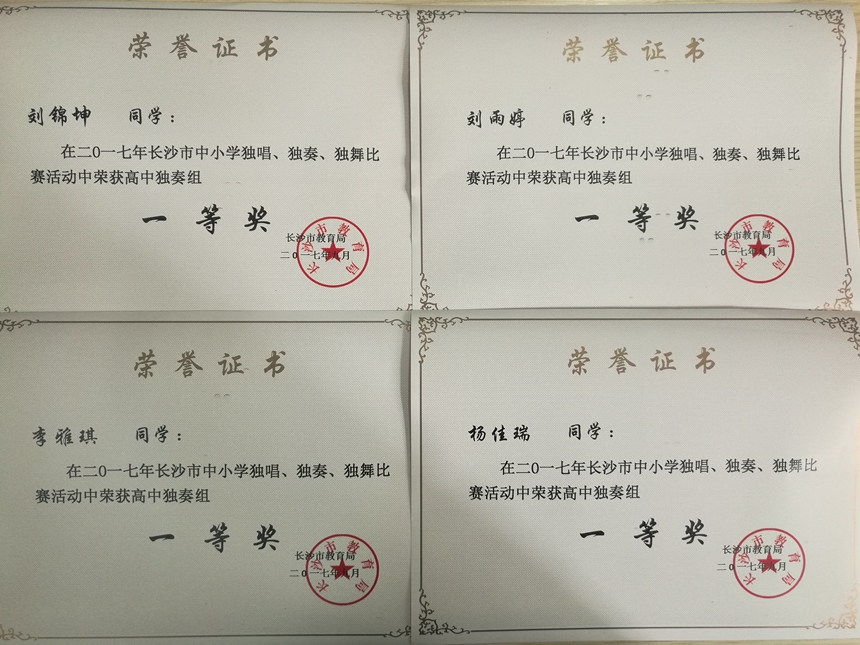 荣誉证书
刘锦坤 同学：
在二0一七年长沙市中小学独唱、独奏、独舞比
赛活动中荣获高中独奏组
一等奖
长沙市教育局
二0一七年九月
长沙市教育局
荣誉证书
刘雨婷 同学：
在二0一七年长沙市中小学独唱、独奏、独舞比
赛活动中荣获高中独奏组
一等奖
长沙市教育局
二0一七年九月
长沙市教育局
荣誉证书
李雅琪 同学：
在二0一七年长沙市中小学独唱、独奏、独舞比
赛活动中荣获高中独奏组
一等奖
长沙市教育局
二0一七年九月
长沙市教育局
荣誉证书
杨佳瑞 同学：
在二0一七年长沙市中小学独唱、独奏、独舞比
赛活动中荣获高中独奏组
一等奖
长沙市教育局
二0一七年九月
长沙市教育局